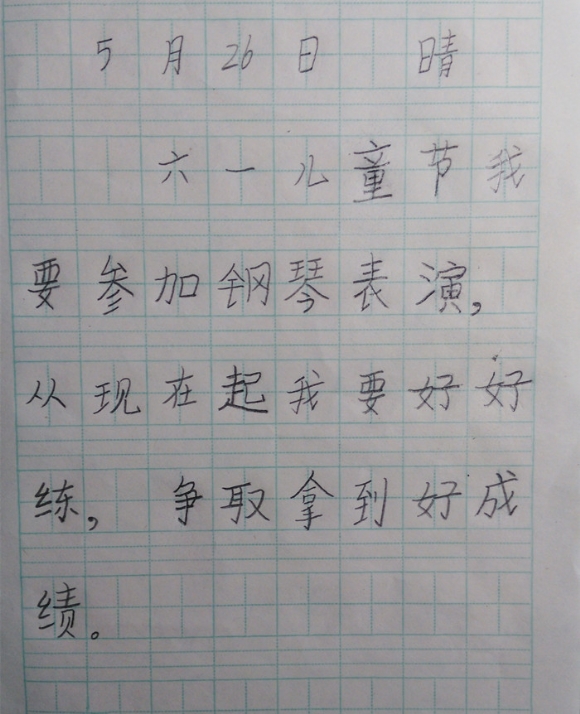 5月26日 晴
六一儿童节我
要参加钢琴表演,
从现在起我要好好
练,争取拿到好成
绩。